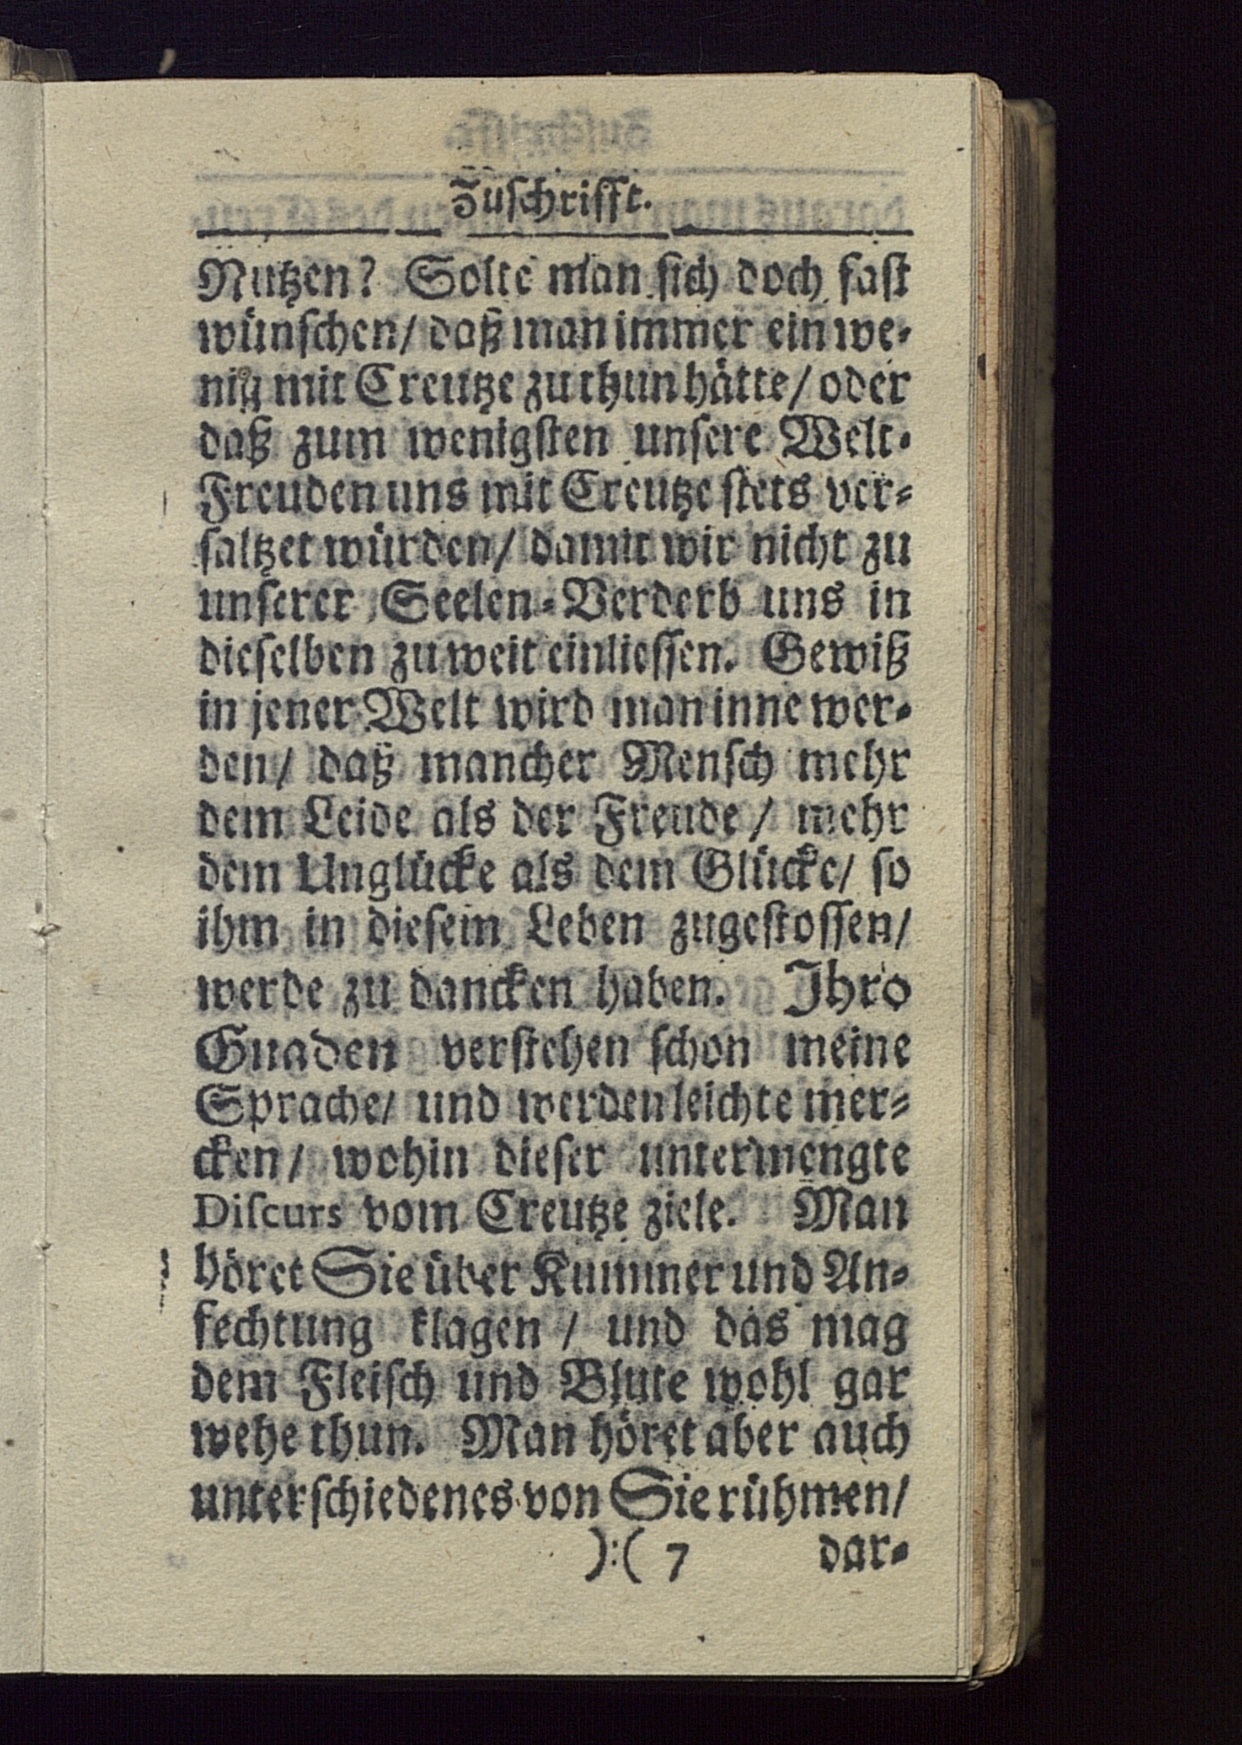 Zuschrifft.
Nutzen? Solte man sich doch fast
wünschen/ daß man immer ein we-
nig mit Creutze zu thun hätte/ oder
daß zum wenigsten unsere Welt-
Freuden uns mit Creutze stets ver-
saltzet würden/ damit wir nicht zu
unserer Seelen-Verderb uns in
dieselben zu weit einliessen. Gewiß
in jener Welt wird man inne wer-
den/ daß mancher Mensch mehr
dem Leide als der Freude/ mehr
dem Unglücke als dem Glücke/ so
ihm in diesem Leben zugestossen/
werde zu dancken haben. Ihro
Gnaden verstehen schon meine
Sprache/ und werden leichte mer-
cken/ wohin dieser untermengte
Discurs vom Creutze ziele. Man
höret Sie über Kummer und An-
fechtung klagen/ und das mag
dem Fleisch und Blute wohl gar
wehe thun. Man höret aber auch
unterschiedenes von Sie rühmen/
):( 7 dar-